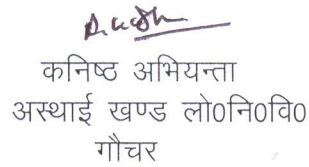 कनिष्ठ अभियन्ता
अस्थाई खण्ड लो0नि0वि0
गौचर